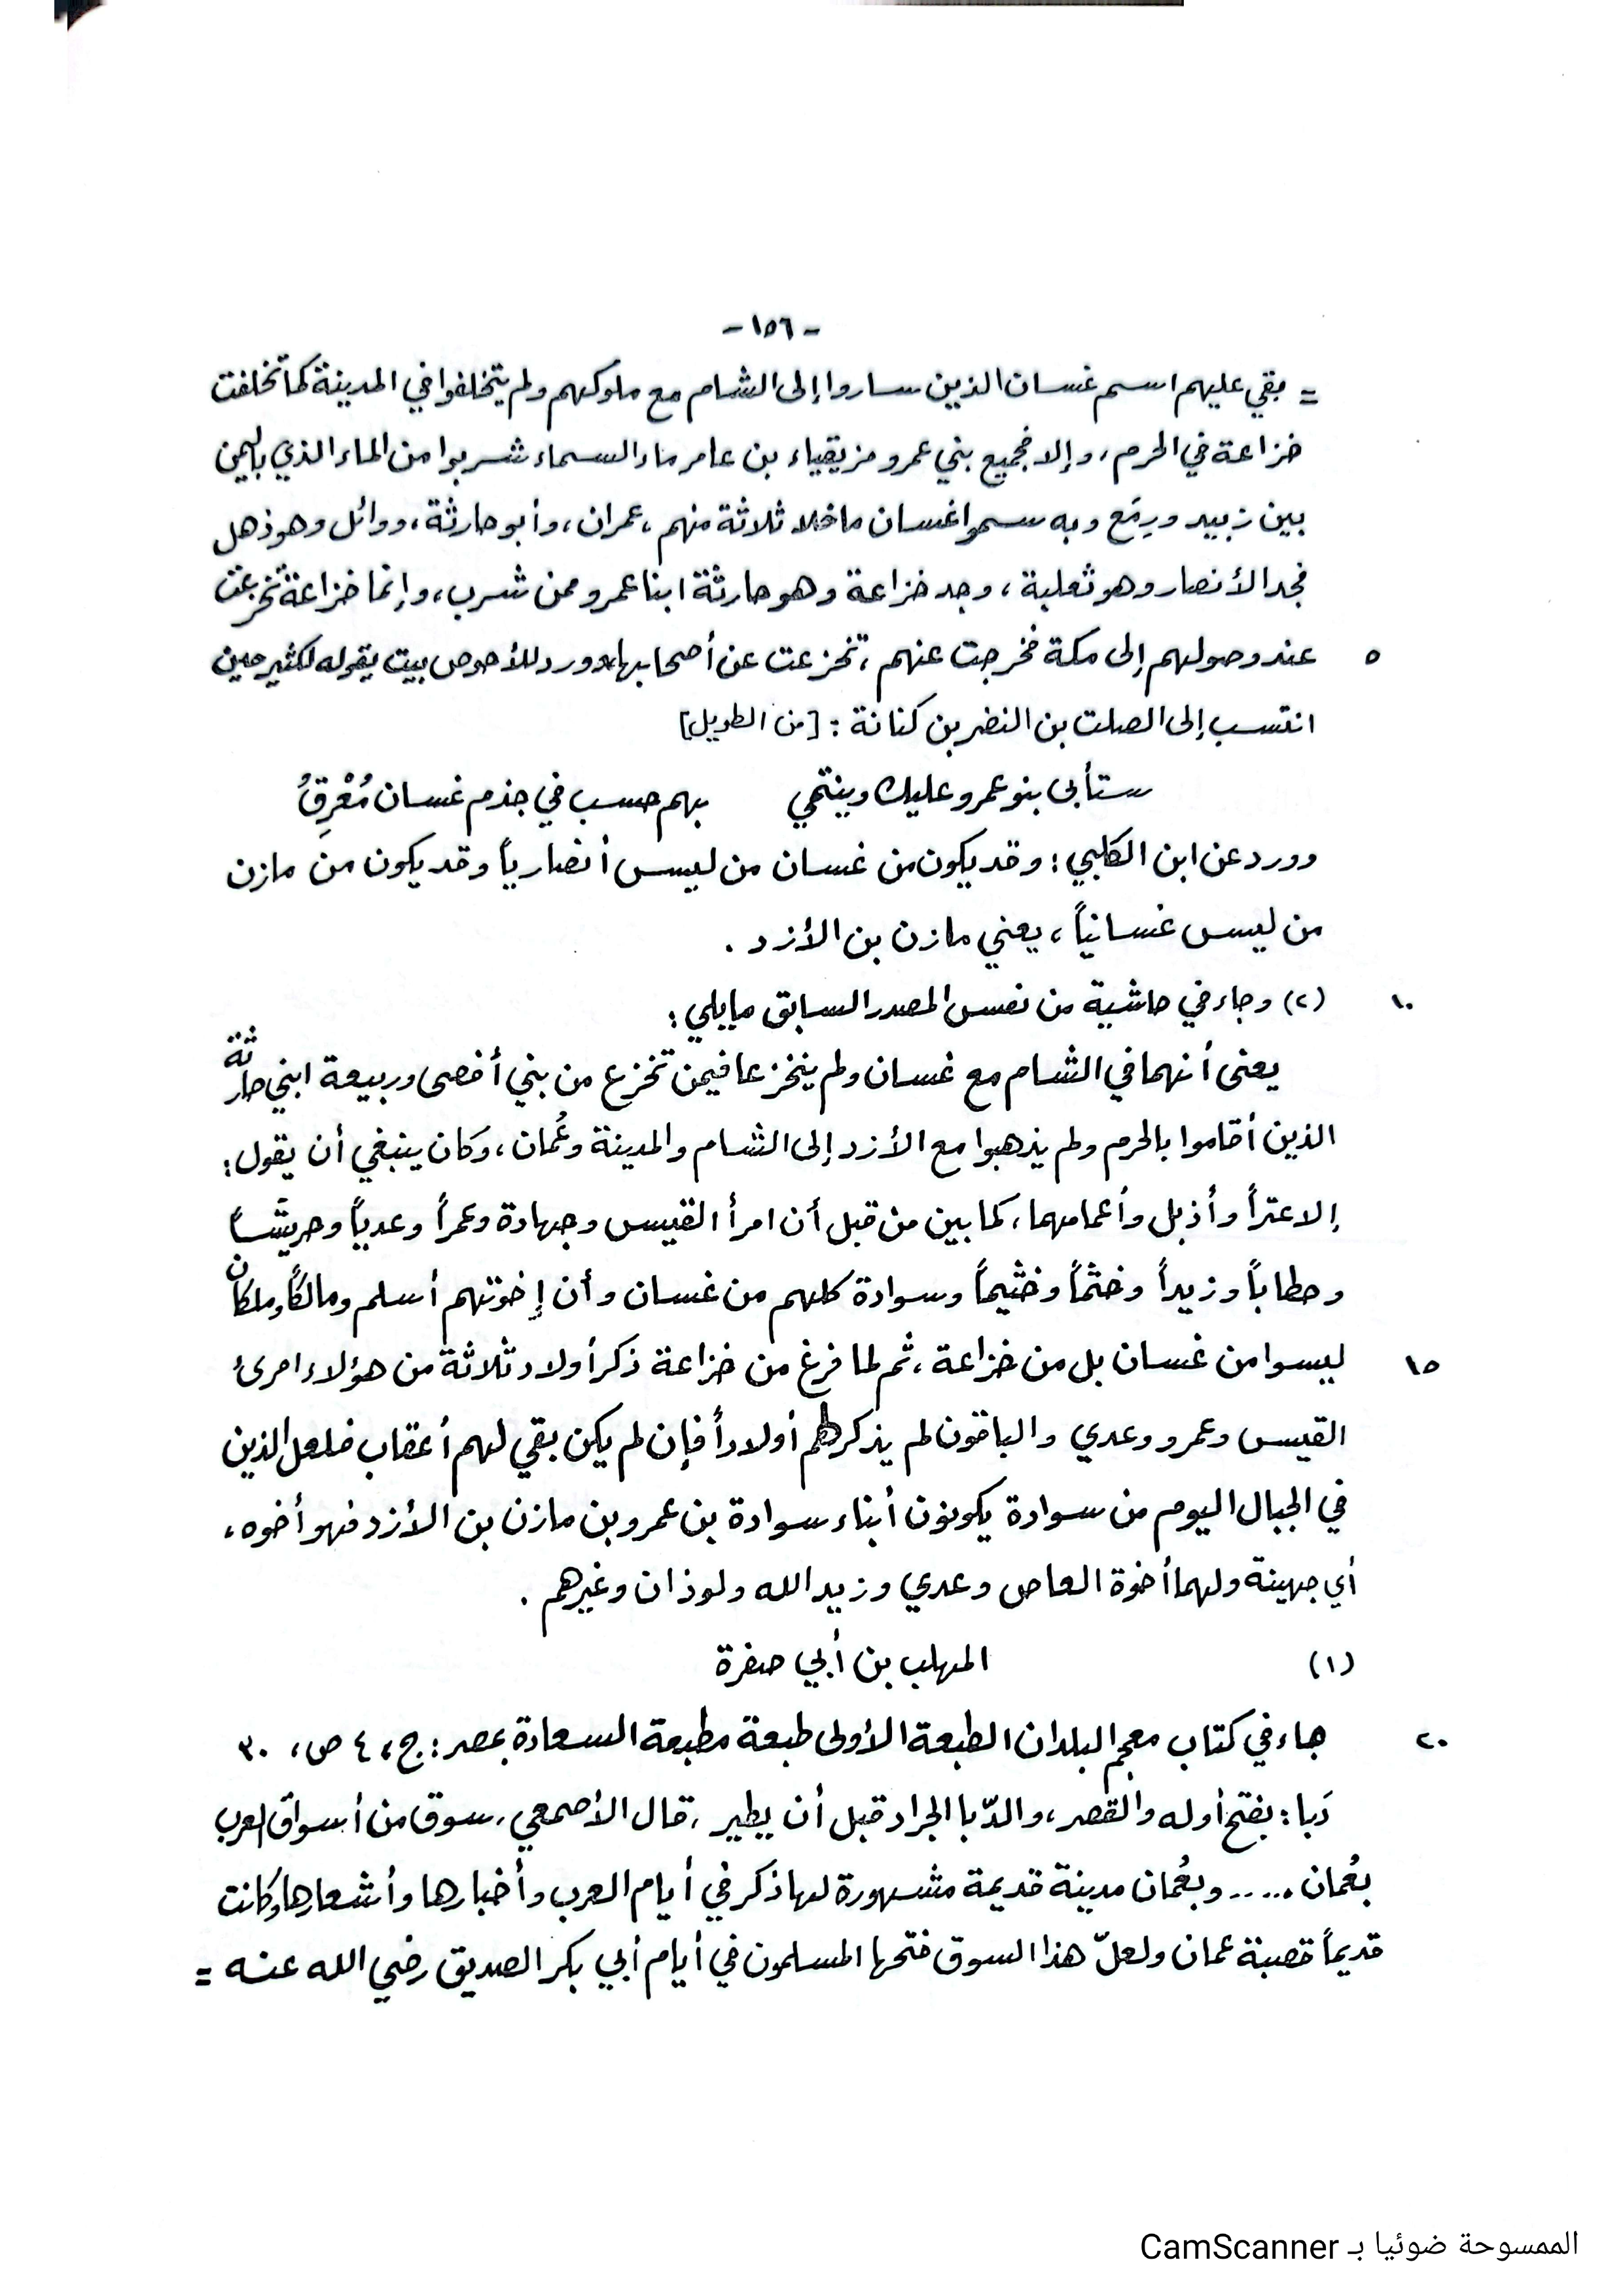 - ١٥٦ -
= بقي عليهم اسم غسان الذين ساروا إلى الشام مع ملوكهم ولم يتخلفوا في المدينة كما تخلفت
خزاعة في الحرم، وإلا فجميع بني عمرو مزيقياء بن عامر ماء السماء شربوا من الماء الذي باليمن
بين زبيد ورِمَع وبه سموا غسان ماخلا ثلاثة منهم، عمران، وأبو حارثة، ووائل وهو ذهل
فجد الأنصار وهو ثعلبة، وجد خزاعة وهو حارثة ابنا عمرو ممن شرب، وإنما خزاعة تخزعت
٥ عند وصولهم إلى مكة فخرجت عنهم، تخزعت عن أصحابها، وورد للأحوص بيت يقوله لكثير حين
انتسب إلى الصلت بن النضر بن كنانة : [من الطويل]
ستأبى بنو عمرو عليك وينتمي بهم حسب في جذم غسان مُعْرِقُ
وورد عن ابن الكلبي: وقد يكون من غسان من ليس أنصارياً وقد يكون من مازن
من ليس غسانياً، يعني مازن بن الأزد .
١٠ (٢) وجاء في حاشية من نفس المصدر السابق مايلي:
يعني أنهما في الشام مع غسان ولم ينخزعا فيمن تخزع من بني أفصى وربيعة ابني حارثة
الذين أقاموا بالحرم ولم يذهبوا مع الأزد إلى الشام والمدينة وعُمان، وكان ينبغي أن يقول:
إلا عتراً وأذبل وأعمامهما، كما بين من قبل أن امرأ القيس وجهادة وعمراً وعدياً وحريشاً
وحطاباً وزيداً وخثماً وخثيماً وسوادة كلهم من غسان وأن إخوتهم أسلم ومالكاً وملكان
١٥ ليسوا من غسان بل من خزاعة، ثم لما فرغ من خزاعة ذكر أولاد ثلاثة من هؤلاء امرئ
القيس وعمرو وعدي والباقون لم يذكر لهم أولاداً فإن لم يكن بقي لهم أعقاب فلعل الذين
في الجبال اليوم من سوادة يكونون أبناء سوادة بن عمرو بن مازن بن الأزد فهو أخوه،
أي جهينة ولهما أخوة العاص وعدي وزيد الله ولوذان وغيرهم .
(١) المهلب بن أبي صفرة
٢٠ جاء في كتاب معجم البلدان الطبعة الأولى طبعة مطبعة السعادة بمصر: ج، ٤ ص، ٣٠
دَبا: بفتح أوله والقصر، والدّبا الجراد قبل أن يطير، قال الأصمعي، سوق من أسواق العرب
بعُمان ..... وبعُمان مدينة قديمة مشهورة لها ذكر في أيام العرب وأخبارها وأشعارها وكانت
قديماً قصبة عمان ولعلّ هذا السوق فتحها المسلمون في أيام أبي بكر الصديق رضي الله عنه =
الممسوحة ضوئيا بـ CamScanner